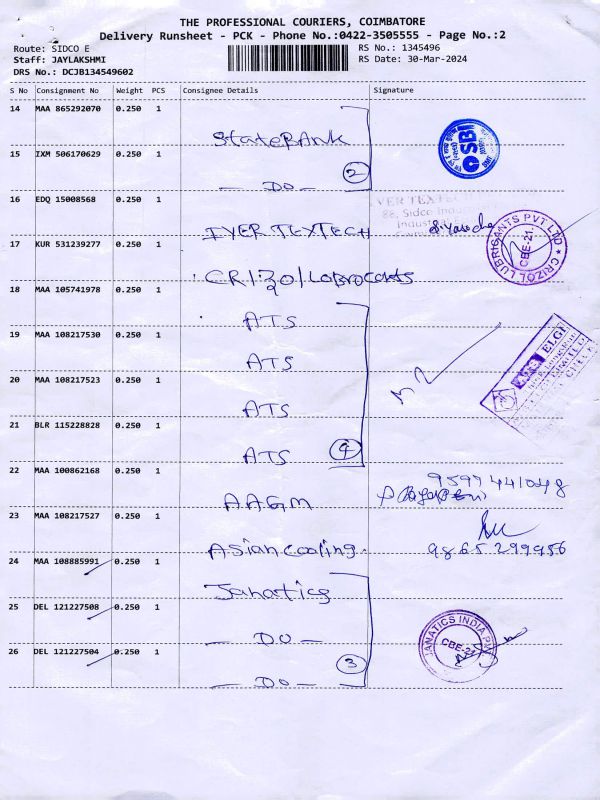 THE PROFESSIONAL COURIERS, COIMBATORE
Delivery Runsheet - PCK - Phone No.:0422-3505555 - Page No.:2
Route: SIDCO E
RS No.: 1345496
Staff: JAYLAKSHMI
RS Date: 30-Mar-2024
DRS No.: DCJB134549602
S No Consignment No Weight PCS Consignee Details Signature
14 MAA 865292070 0.250 1
State BANK
SBI
15 IXM 506170629 0.250 1
2
- DO -
16 EDQ 15008568 0.250 1
VER TEX
88, Sidco Indus
IYER TEXTECH
17 KUR 531239277 0.250 1
CRIZOL LUBRICANTS PVT LTD
CBE-21
18 MAA 105741978 0.250 1
ATS
19 MAA 108217530 0.250 1
ATS
ELGI
20 MAA 108217523 0.250 1
ATS
21 BLR 115228828 0.250 1
4
ATS
22 MAA 100862168 0.250 1
9597441048
AAGM
23 MAA 108217527 0.250 1
Asian cooling.
9865299956
24 MAA 108885991 0.250 1
Janatics
25 DEL 121227508 0.250 1
- DO -
JANATICS INDIA PV
CBE-21
26 DEL 121227504 0.250 1
3
- DO -